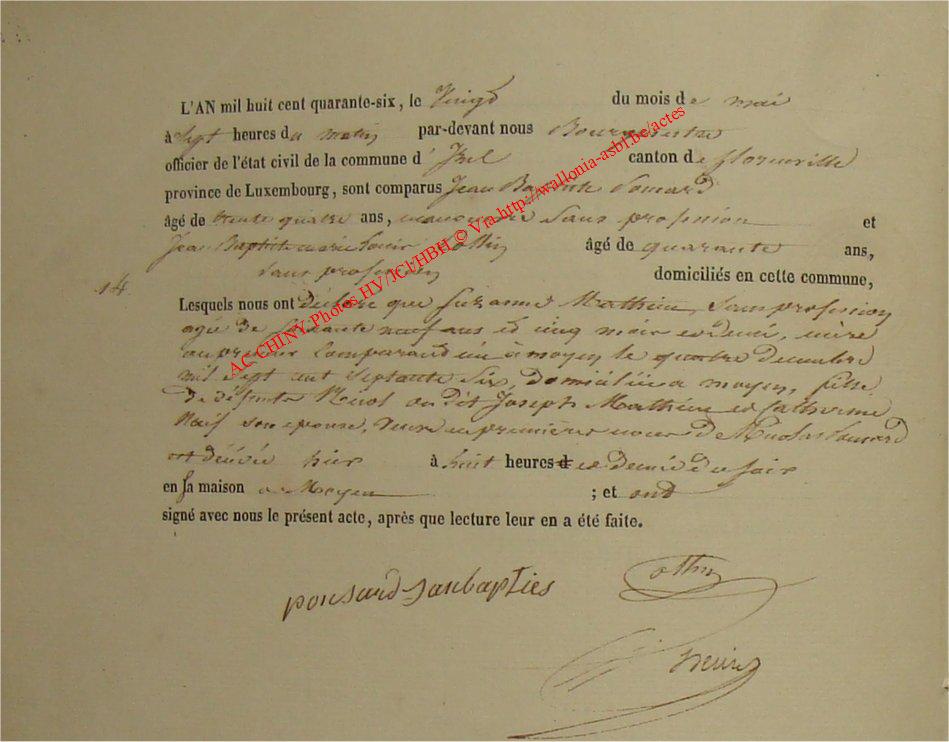 L'AN mil huit cent quarante-six, le Vingt du mois de mai
à sept heures du matin par-devant nous Bourgmestre
officier de l'état civil de la commune d' Izel canton de florenville
province de Luxembourg, sont comparus Jean Baptiste Ponsard
âgé de trente quatre ans, manœuvre sans profession et
Jean Baptiste marie louis Othin âgé de quarante ans,
sans profession domiciliés en cette commune,
14.
Lesquels nous ont déclaré que Suzanne Mathieu, sans profession
agée de soixante neuf ans et cinq mois et demi, mère
au premier comparant née à moyen le quatre Decembre
mil sept cent septante six, domiciliée a moyen, fille
de défunts Nicol ou dit Joseph Mathieu et Catherine
Noif son epouse, veuve en premières noces de Nicolas Ponsard
est décédée hier à huit heures et demie du soir
en sa maison a Moyen ; et ont
signé avec nous le présent acte, après que lecture leur en a été faite.
ponsard Janbapties
othin
AC CHINY. Photos HV/JCl/HBH © Via http://wallonia-asbl.be/actes